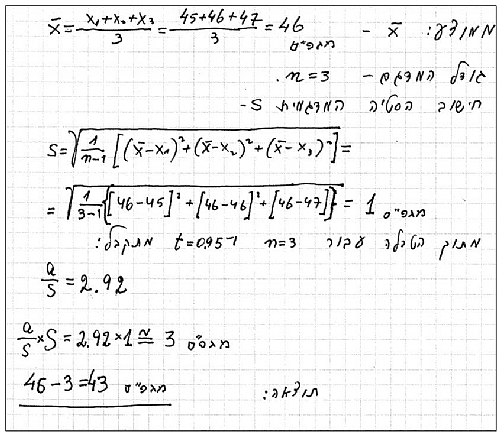 ממוצע: x̄ – x̄ = (x₁+x₂+x₃)/3 = (45+46+47)/3 = 46 מגפ"ס
גודל המדגם – n=3.
חישוב הסטיה המדגמית S-
S=√(1/(n-1) [(x̄-x₁)²+(x̄-x₂)²+(x̄-x₃)²])=
=√(1/(3-1) {[46-45]²+[46-46]²+[46-47]²}) = 1 מגפ"ס
מתוך הטבלה עבור n=3 t=0.95 מתקבל:
a/s = 2.92
a/s × S = 2.92×1 ≅ 3 מגפ"ס
תוצאה: 46-3=43 מגפ"ס